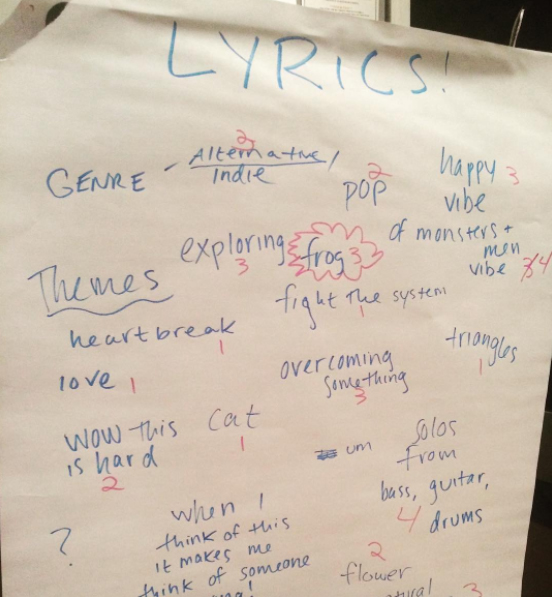 LYRICS!
GENRE - Alternative/
Indie
2
POP
2
happy 3
vibe
of monsters +
men
vibe 4
Themes
exploring
3
frog 3
fight the system
1
heartbreak
1
love 1
overcoming
something
3
triangles
1
wow this
is hard
2
cat
1
um
solos
from
bass, guitar,
4 drums
?
when I
think of this
it makes me
think of someone
2
flower
3